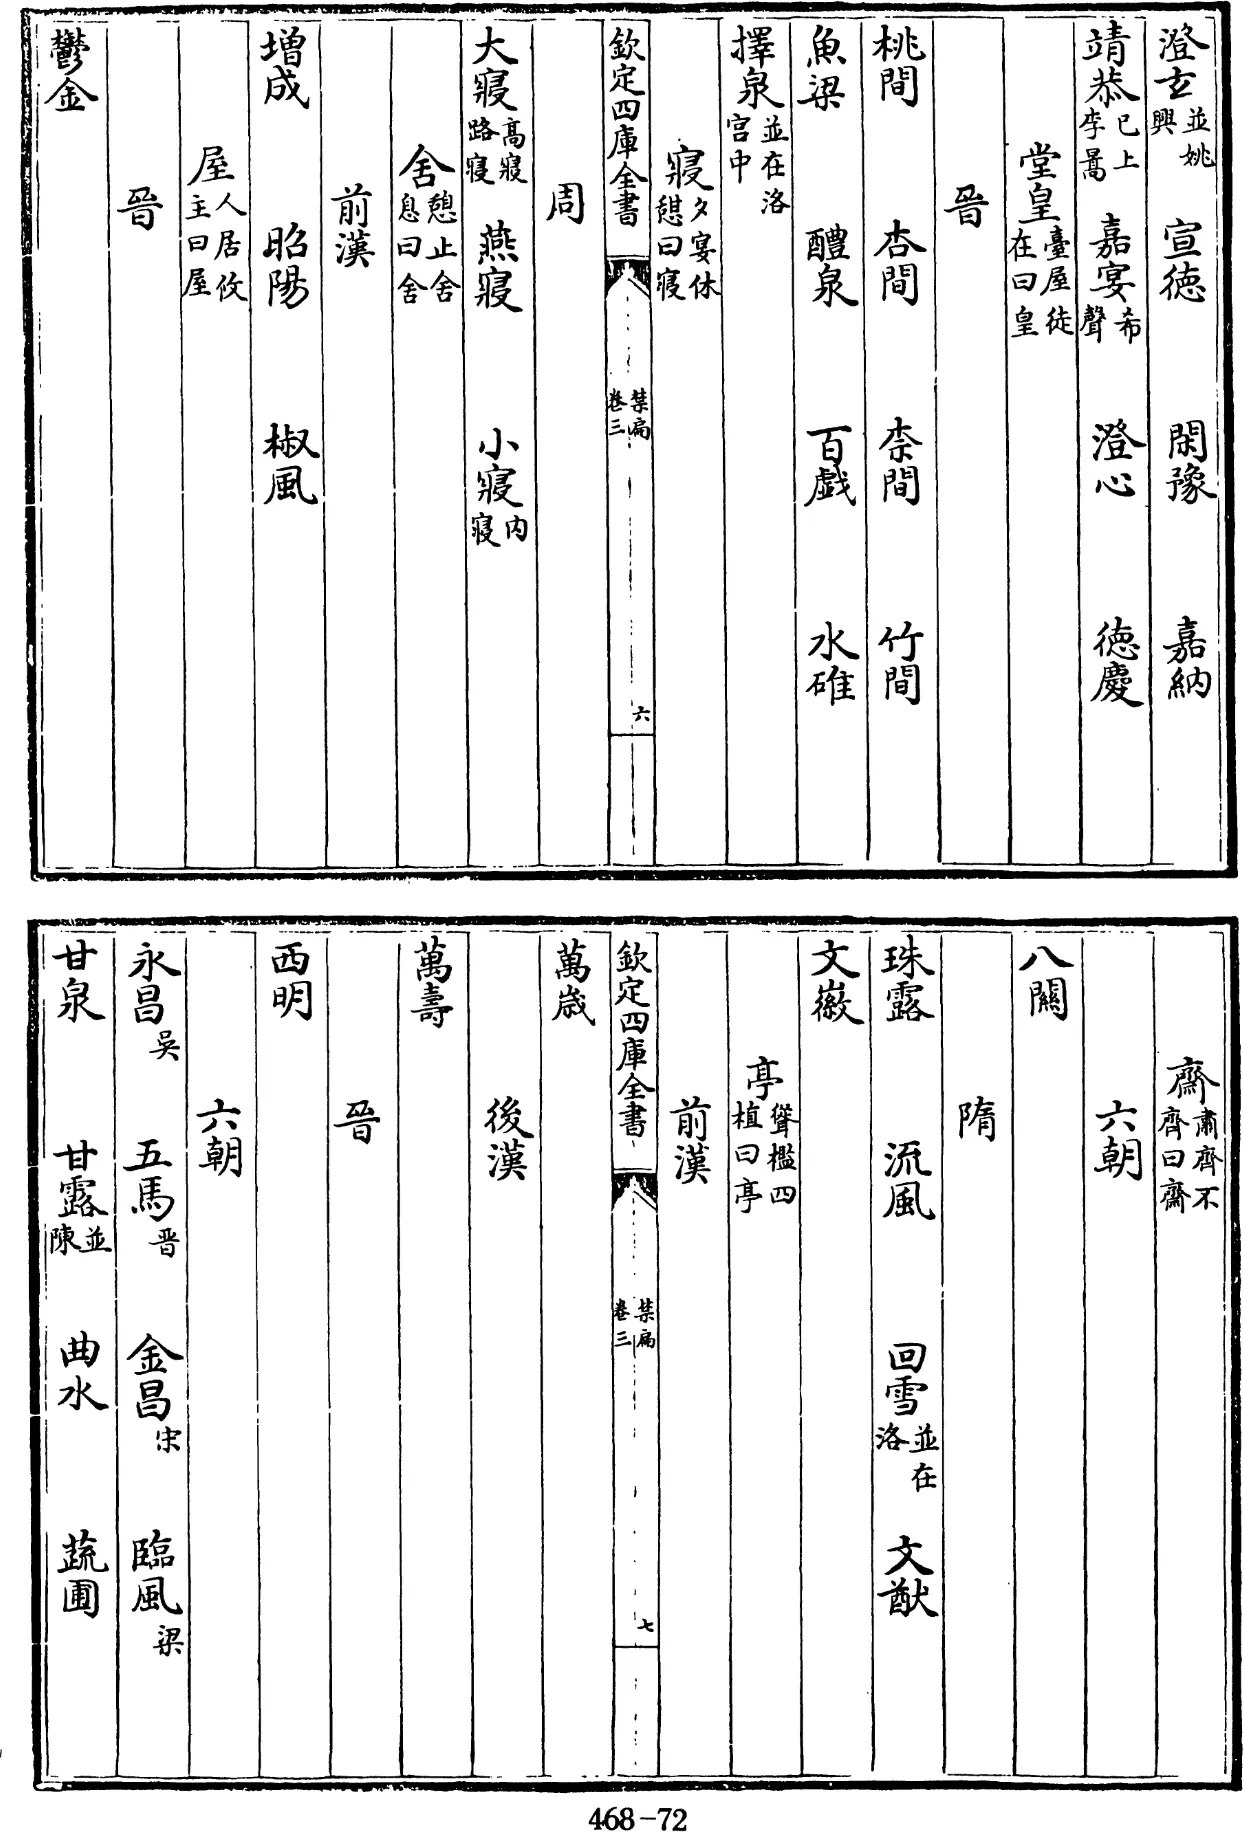 澄玄並姚興 宣徳 閑豫 嘉納
靖恭已上李暠 嘉宴希聲 澄心 徳慶
堂皇臺屋徒在曰皇
晉
桃間 杏間 柰間 竹間
魚梁 醴泉 百戯 水碓
擇泉並在洛宫中
寢夕宴休憇曰寢
欽定四庫全書 禁扁卷三 六
周
大寢髙寢路寢 燕寢 小寢内寢
舍憩止舍息曰舍
前漢
增成 昭陽 椒風
屋人居攸主曰屋
晉
鬱金
齋肅齊不齊曰齋
六朝
八關
隋
珠露 流風 回雪並在洛 文猷
文徽
亭聳檻四植曰亭
前漢
欽定四庫全書 禁扁卷三 七
萬歲
後漢
萬壽
晉
西明
六朝
永昌吳 五馬晋 金昌宋 臨風梁
甘泉 甘露並陳 曲水 蔬圃
468-72